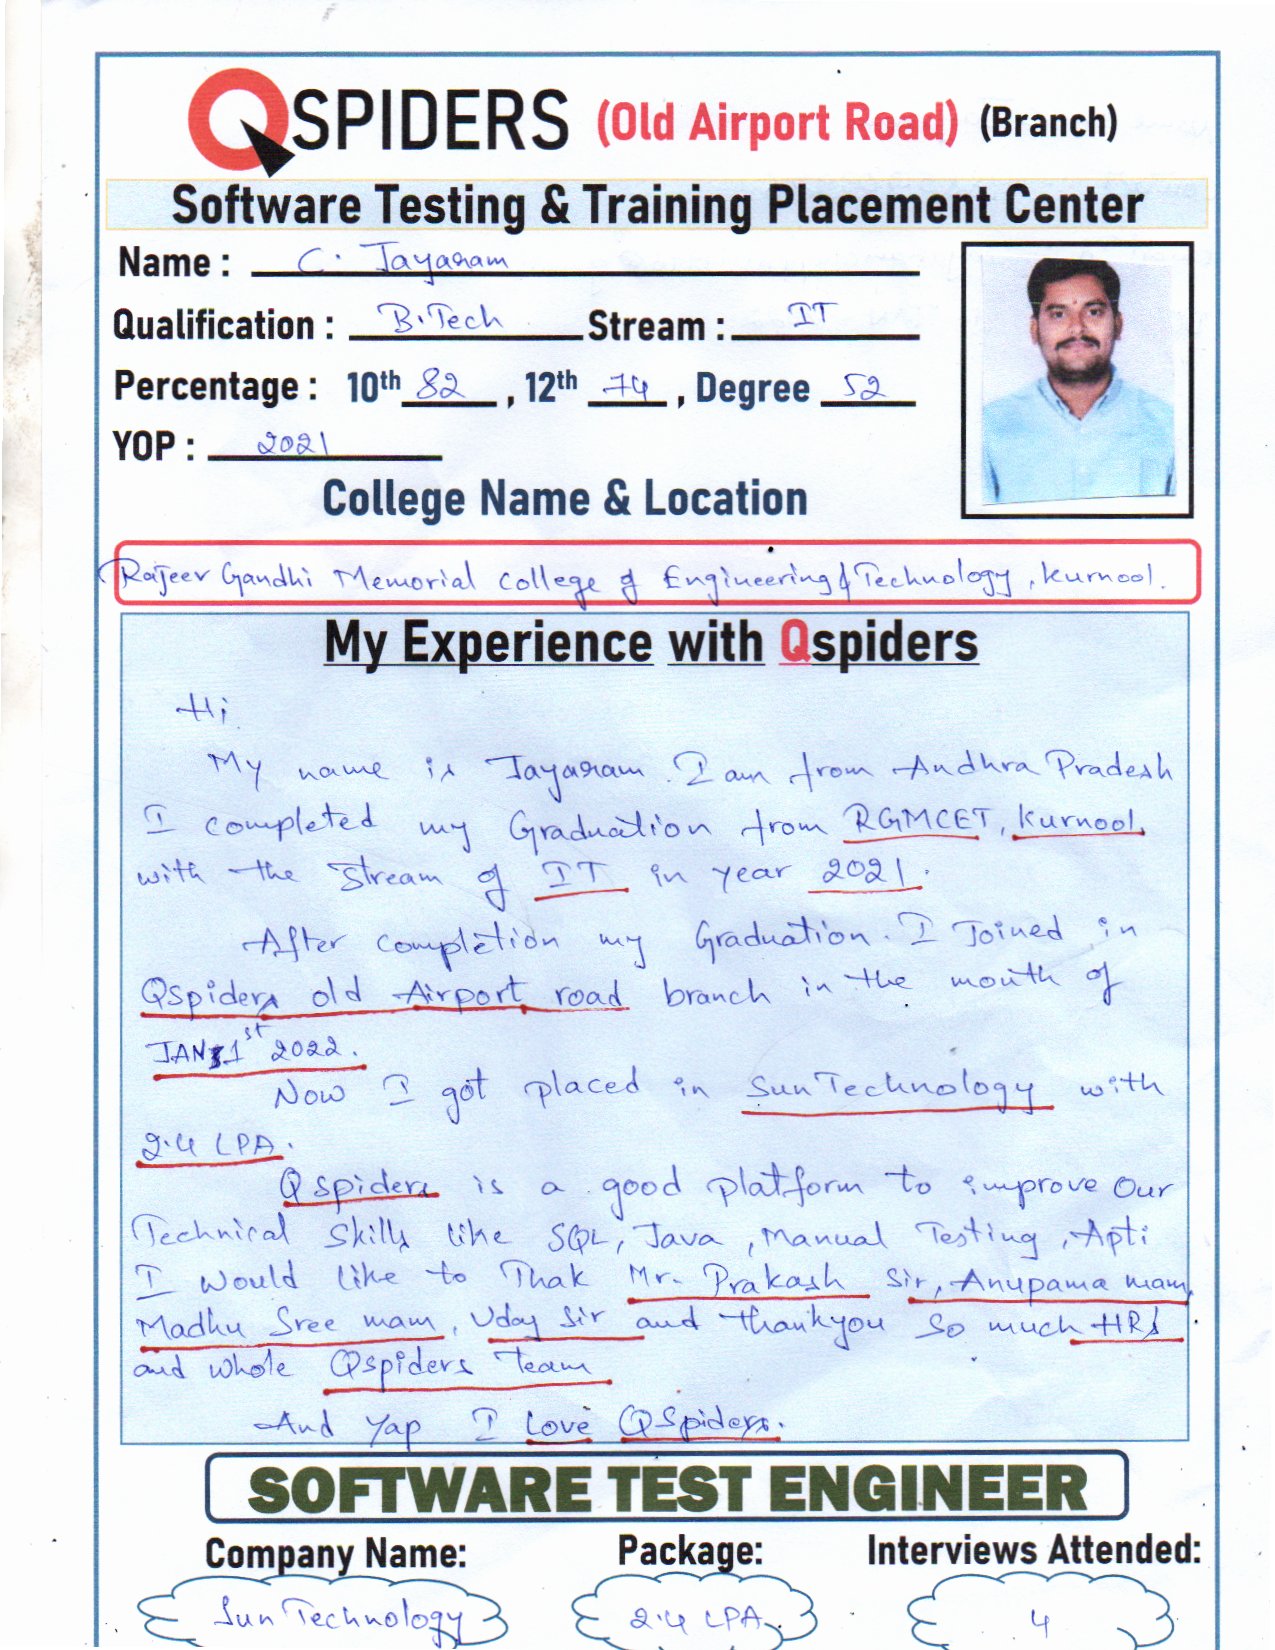 QSPIDERS (Old Airport Road) (Branch)
Software Testing & Training Placement Center
Name : C. Jayaram
Qualification : B.Tech Stream : IT
Percentage : 10th 82 , 12th 74 , Degree 52
YOP : 2021
College Name & Location
Rajeev Gandhi Memorial College of Engineering & Technology, Kurnool.
My Experience with Qspiders
Hi
My name is Jayaram. I am from Andhra Pradesh
I completed my Graduation from RGMCET, Kurnool,
with the Stream of IT in year 2021.
After completion my Graduation. I Joined in
Qspiders old Airport road branch in the month of
JAN 1st 2022.
Now I got placed in Sun Technology with
2.4 LPA.
Qspiders is a good platform to improve Our
Technical Skills like SQL, Java, Manual Testing, Apti
I would like to Thak Mr. Prakash Sir, Anupama mam,
Madhu Sree mam, Uday Sir and thankyou So much HRs
and whole Qspiders Team
And Yap I Love QSpiders.
SOFTWARE TEST ENGINEER
Company Name: Package: Interviews Attended:
Sun Technology 2.4 LPA. 4